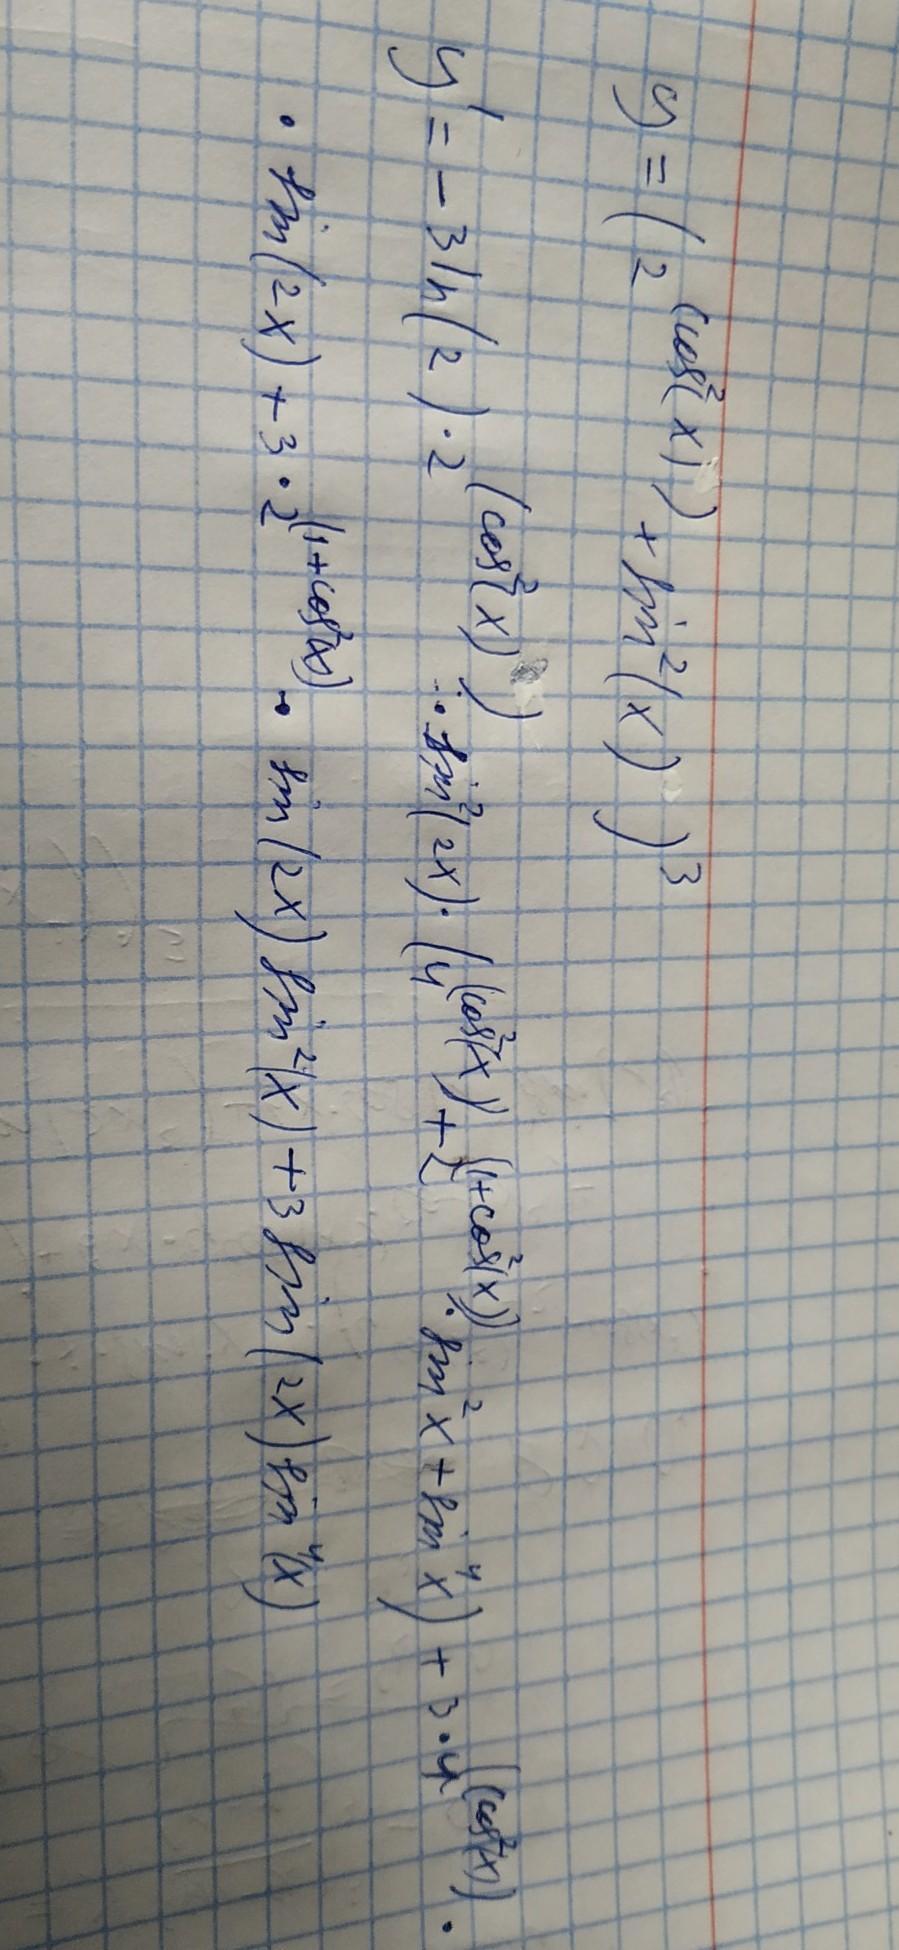 y = (2^(cos²(x)) + sin²(x))³
y' = -3ln(2)·2^(cos²(x))·sin²(2x)·(4^(cos²(x)) + 2^(1+cos²(x))·sin²x + sin⁴x) + 3·4^(cos²(x))·
·sin(2x) + 3·2^(1+cos²(x))·sin(2x) sin²(x) + 3sin(2x) sin⁴(x)